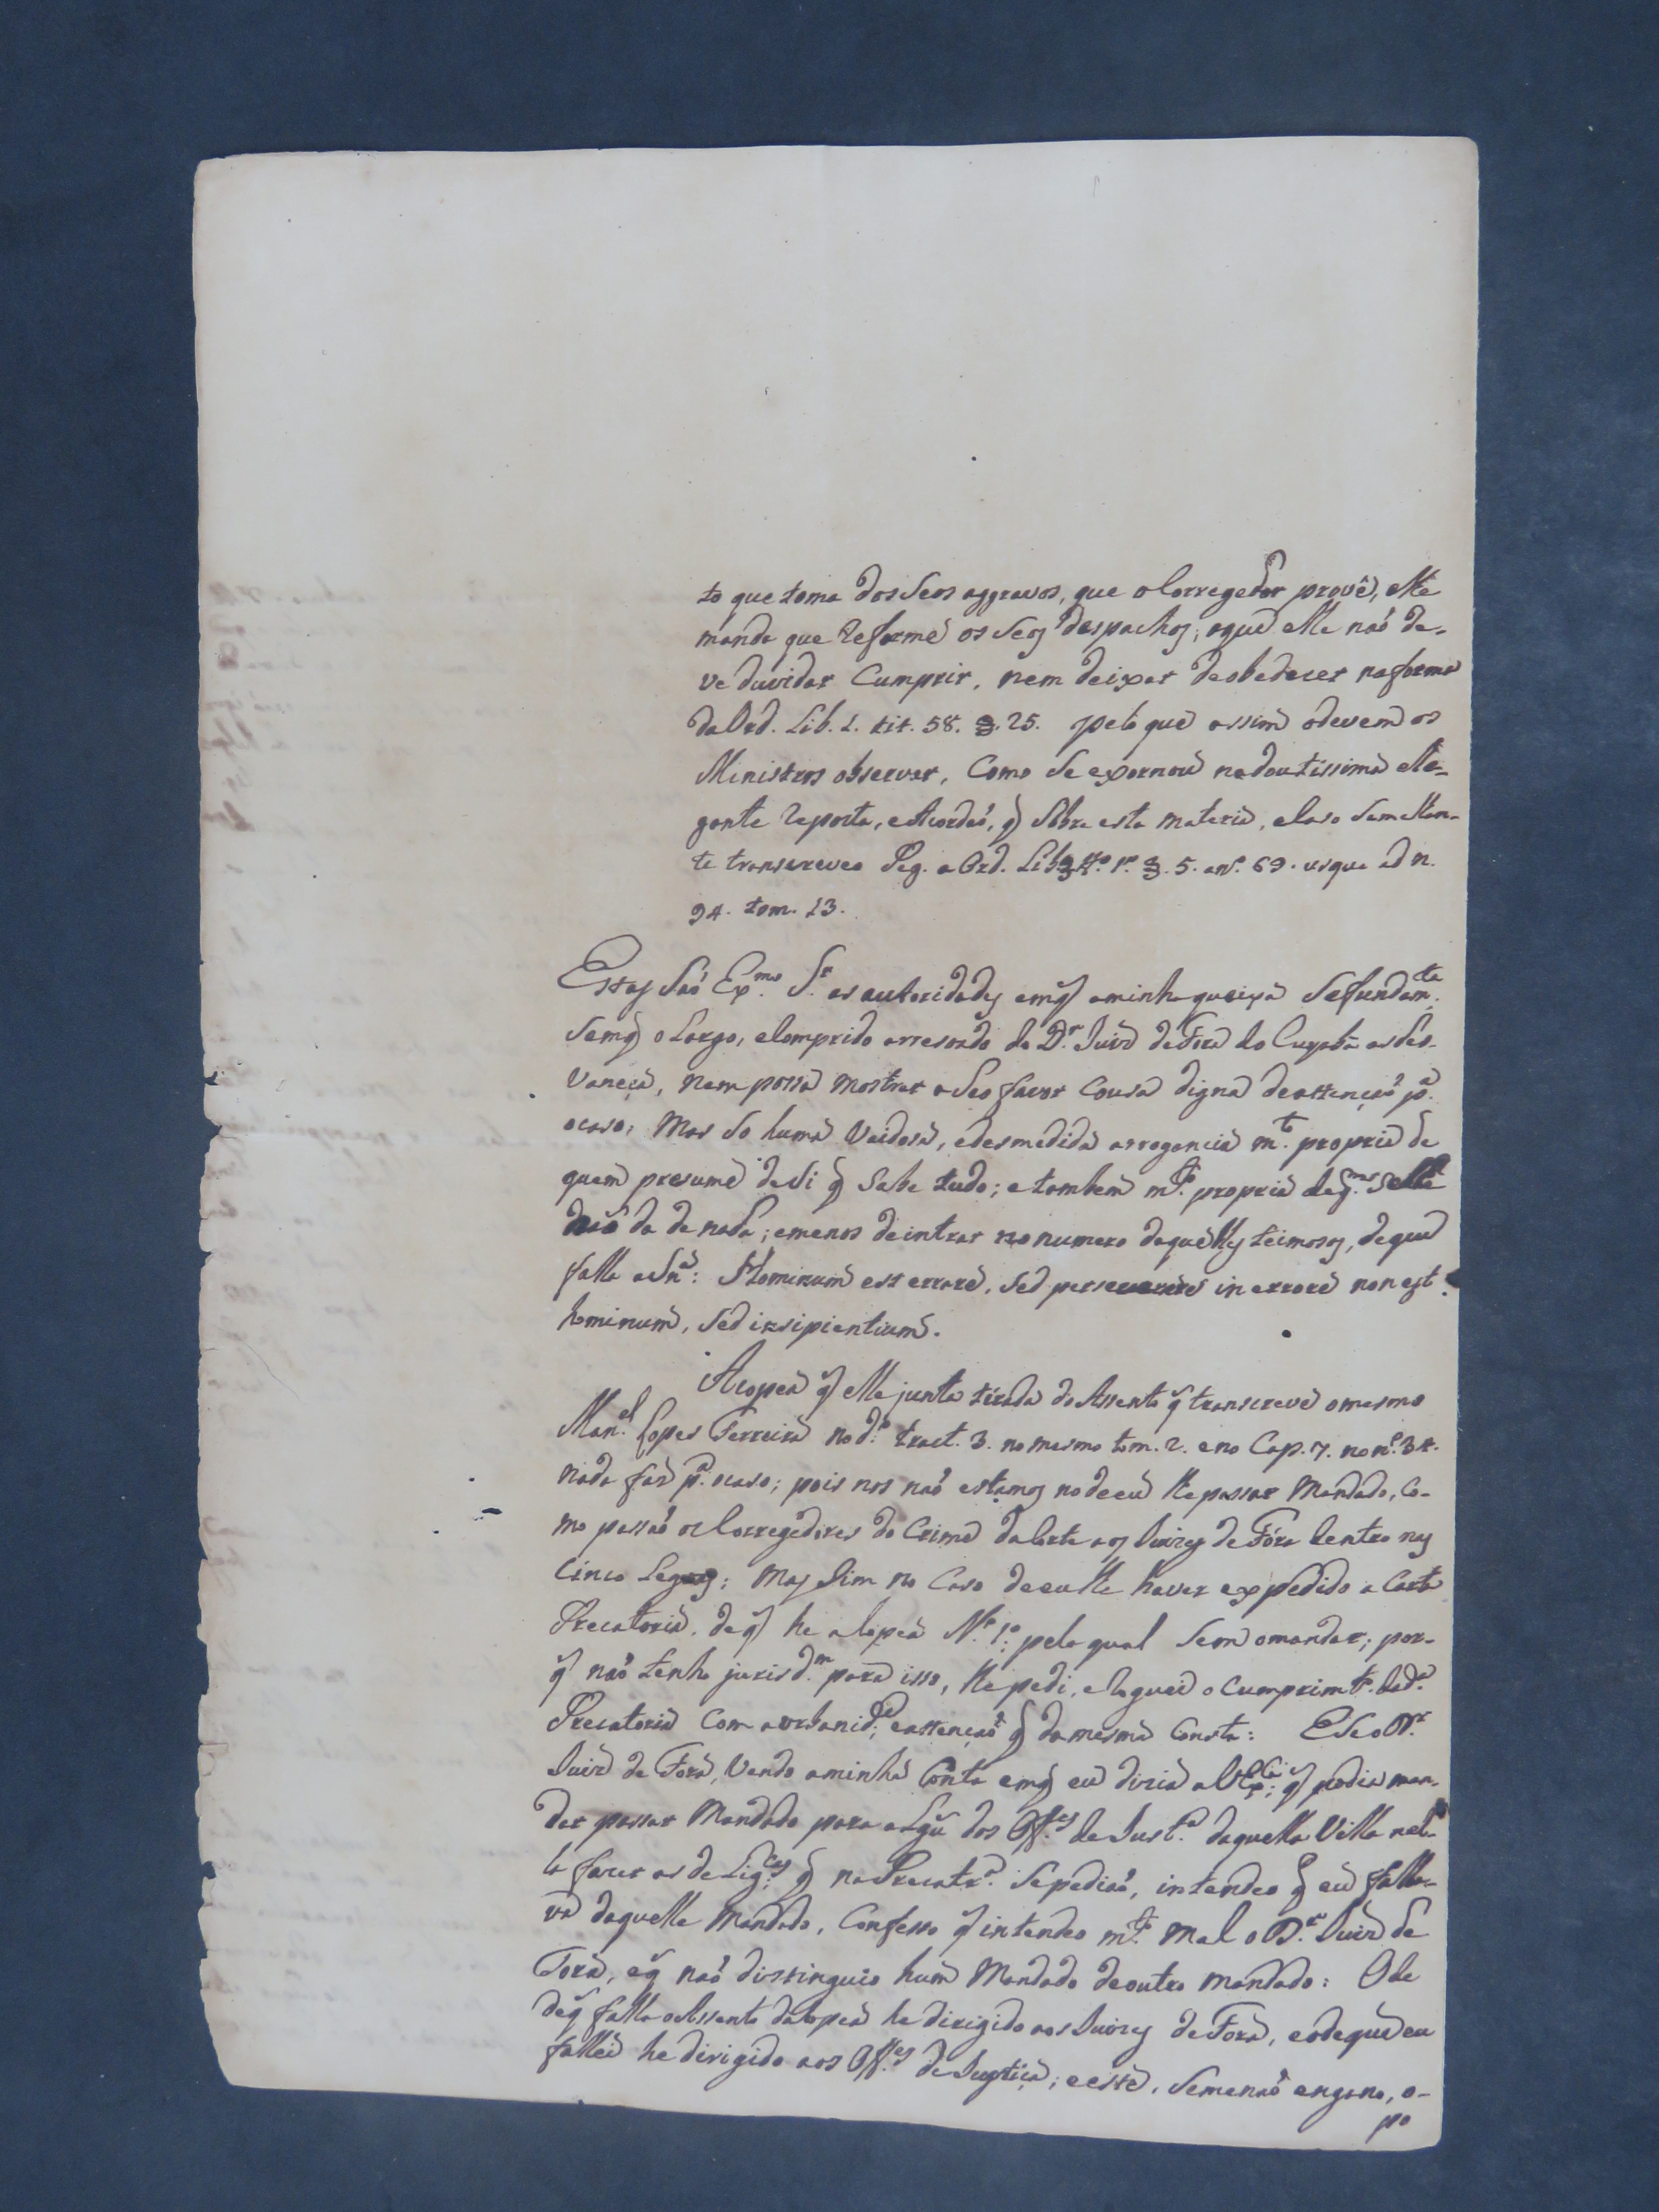 to que toma dos Seos aggravos, que o Corregedor provê, e lhe
manda que Reforme os Seos despachos; o que elle naõ de-
ve duvidar Cumprir, nem deixar de obedecer na forma
da Ord. Lib. 1. tit. 58. §. 25. pelo que assim o devem os
Ministros observar, Como Se exornou na doutissima ele-
gante Reposta, e Acordaõ, q̃ Sobre esta materia, e Caso Semelhan-
te transcreveo Peg. a Ord. Lib. 1. §. 5. an.º 69. usque ad n.
94. tom. 13.
Estas Saõ Ex.mo S.r as autoridades em q̃ a minha queixa Se fundam.ta
Sem q̃ o Largo, e Comprido arresoado do D.r Juiz de Fora do Cuyabá as des-
vaneça, nem possa mostrar a Seo favor Cousa digna de attençaõ p.a
o caso; Mas So huma Vaidosa, e desmedida arrogancia m.to propria de
quem presume de Si q̃ Sabe tudo; e tambem m.to propria de q.m
da de nada; e menos de intrar no numero daquelles teimosos, de que
falla a Sn.a: Hominum est errare, Sed perseverare in errore non est
hominum, Sed insipientium.
A Copea q̃ elle junta tirada do Assento q̃ transcreve o mesmo
Man.el Lopes Ferreira no d.º tract. 3. no mesmo tom. 2. e no Cap. 7. no n.º 34.
nada faz p.a o caso; pois nos naõ estamos no de eu lhe passar Mandado, Co-
mo passaõ os Corregedores do Crime da Corte aos Juizes de Fóra dentro nas
Cinco Legoas; Mas Sim no Caso de eu lhe haver expedido a Carta
Precatoria, de q̃ he a Copea N.º 1.º; pela qual Sem o mandar; por-
q̃ naõ tenho jurisd.m para isso, lhe pedi, e Roguei o Cumprim.to da d.a
Precatoria Com a urbanid.e, e attençaõ q̃ da mesma Consta: E Se o D.r
Juiz de Fora, Vendo a minha Conta em q̃ eu dizia a V. Ex.cia q̃ podia man-
dar passar Mandado para algũ dos Off.es de Just.a daquella Villa nel-
la fazer as deLig.cas q̃ na Precatr.a Se pediaõ, intendeo q̃ eu falla-
va daquelle Mandado, Confesso q̃ intendeo m.to mal o D.r Juiz de
Fora, e q̃ naõ distinguio hum Mandado de outro mandado: O de
de q̃ falla o Assento da Copea he dirigido aos Juizes de Fora, e o de que eu
fallei he dirigido aos Off.es de Justiça; e este, Se me naõ engano, o-
po